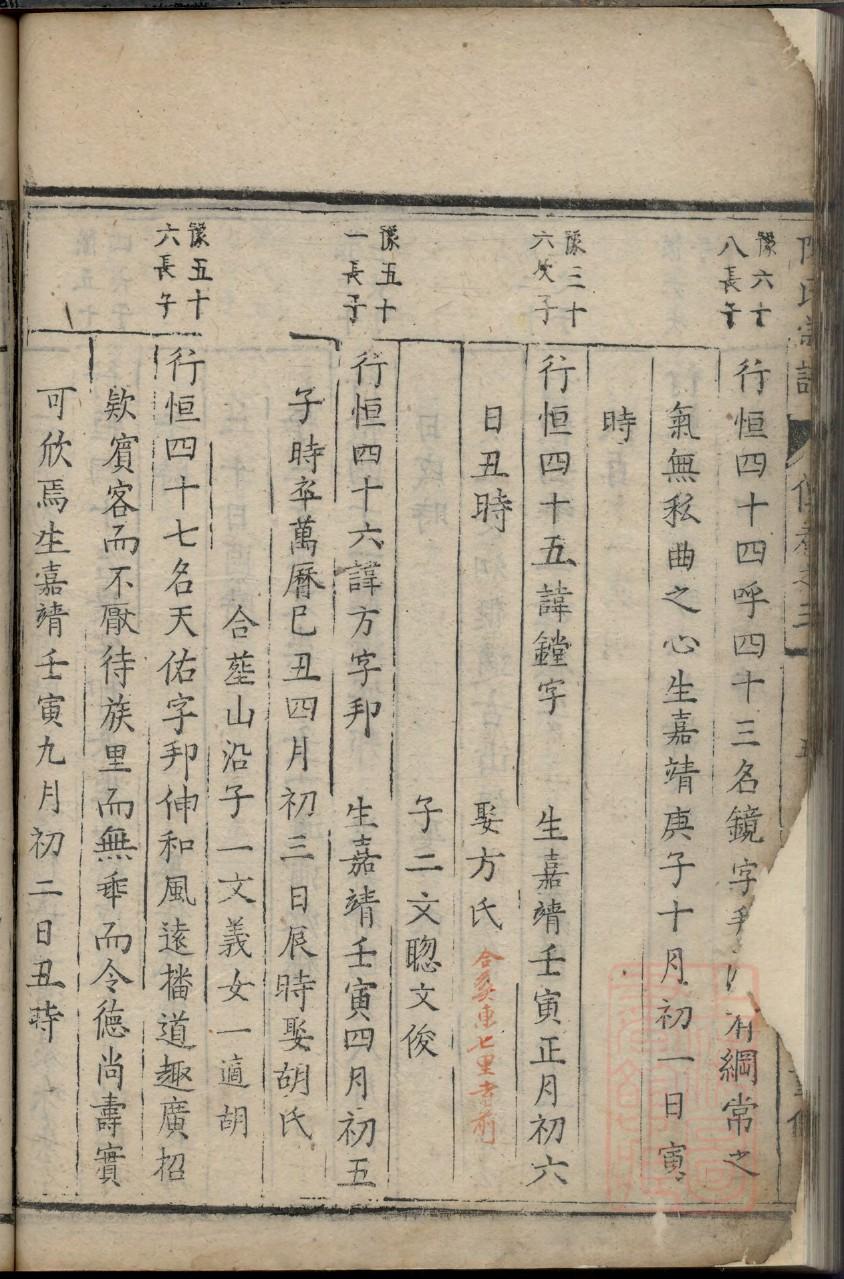 豫六十
八長子
行恒四十四呼四十三名鏡字 綱常之
氣無私曲之心生嘉靖庚子十月初一日寅
時
豫三十
六次子
行恒四十五諱鏜字 生嘉靖壬寅正月初六
日丑時 娶方氏 合葬東七里
子二文聰文俊
豫五十
一長子
行恒四十六諱方字邦 生嘉靖壬寅四月初五
子時卒萬曆己丑四月初三日辰時娶胡氏
合𦵏山沿子一文義女一適胡
豫五十
六長子
行恒四十七名天佑字邦伸和風遠播道趣廣招
欵賓客而不厭待族里而無乖而令德尚壽實
可欣焉生嘉靖壬寅九月初二日丑時